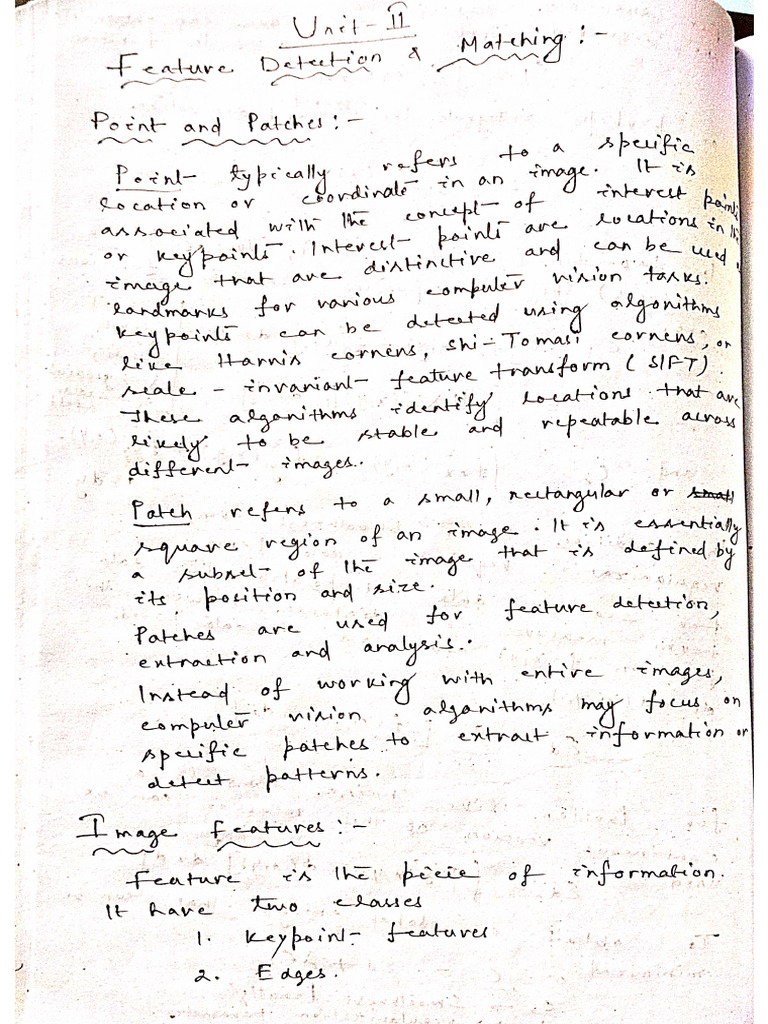 Unit-II
Feature Detection & Matching:-
Point and Patches:-
Point- typically refers to a specific
location or coordinate in an image. It is
associated with the concept of interest points
or keypoints. Interest points are locations in the
image that are distinctive and can be used
landmarks for various computer vision tasks.
Keypoints can be detected using algorithms
like Harris corners, Shi-Tomasi corners, or
scale-invariant feature transform (SIFT).
These algorithms identify locations that are
likely to be stable and repeatable across
different images.
Patch refers to a small, rectangular or small
square region of an image. It is essentially
a subset of the image that is defined by
its position and size.
Patches are used for feature detection,
extraction and analysis.
Instead of working with entire images,
computer vision algorithms may focus on
specific patches to extract information or
detect patterns.
Image Features:-
Feature is the piece of information.
It have two classes
1. Keypoint features
2. Edges.